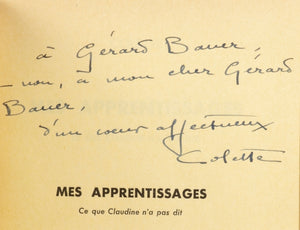 à Gérard Bauer,
— non, à mon cher Gérard
Bauer,
d'un cœur affectueux
Colette
MES APPRENTISSAGES
Ce que Claudine n'a pas dit